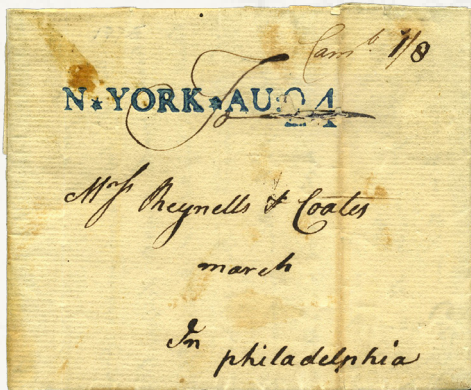 1/8
N★YORK★AU:24
To
Mrss Reynells & Coates
march
In philadelphia